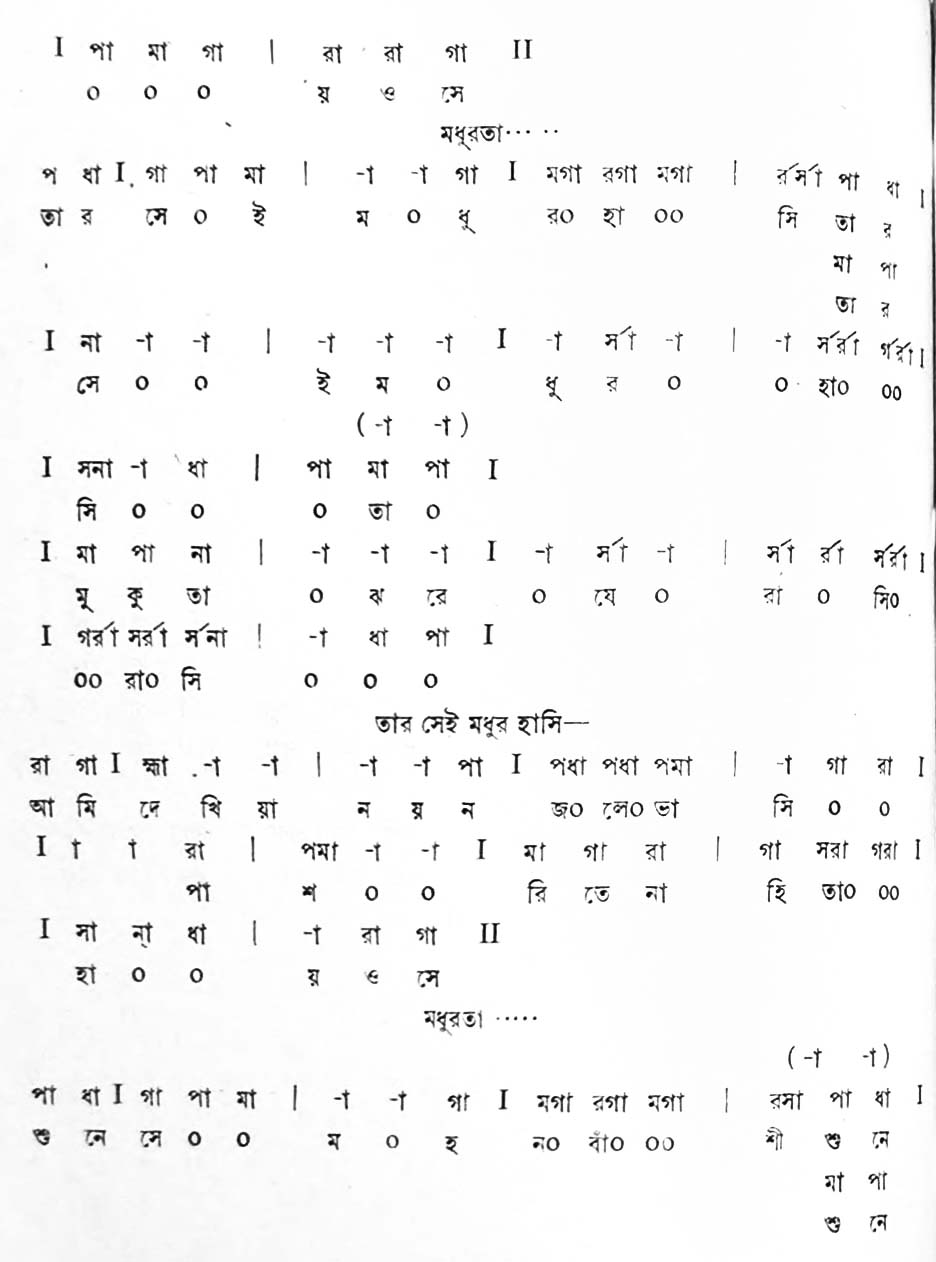 I পা মা গা | রা রা গা II
০ ০ ০ য় ও সে
মধুরতা·····
প ধা I গা পা মা | -া -া গা I মগা রগা মগা | র্র্সা পা ধা I
তা র সে ০ ই ম ০ ধু র০ হা ০০ সি তা র
মা পা
তা র
I না -া -া | -া -া -া I -া র্সা -া | -া র্সর্রা র্গর্রা I
সে ০ ০ ই ম ০ ধু র ০ ০ হা০ ০০
(-া -া)
I সনা -া ধা | পা মা পা I
সি ০ ০ ০ তা ০
I মা পা না | -া -া -া I -া র্সা -া | র্সা র্রা র্সর্রা I
মু কু তা ০ ঝ রে ০ যে ০ রা ০ সি০
I গর্রা সর্রা র্সনা | -া ধা পা I
০০ রা০ সি ০ ০ ০
তার সেই মধুর হাসি—
রা গা I হ্মা -া -া | -া -া পা I পধা পধা পমা | -া গা রা I
আ মি দে খি য়া ন য় ন জ০ লে০ ভা সি ০ ০
I া া রা | পমা -া -া I মা গা রা | গা সরা গরা I
পা শ ০ ০ রি তে না হি তা০ ০০
I সা ন্া ধা | -া রা গা II
হা ০ ০ য় ও সে
মধুরতা ·····
(-া -া)
পা ধা I গা পা মা | -া -া গা I মগা রগা মগা | রসা পা ধা I
শু নে সে ০ ০ ম ০ হ ন০ বাঁ০ ০০ শী শু নে
মা পা
শু নে